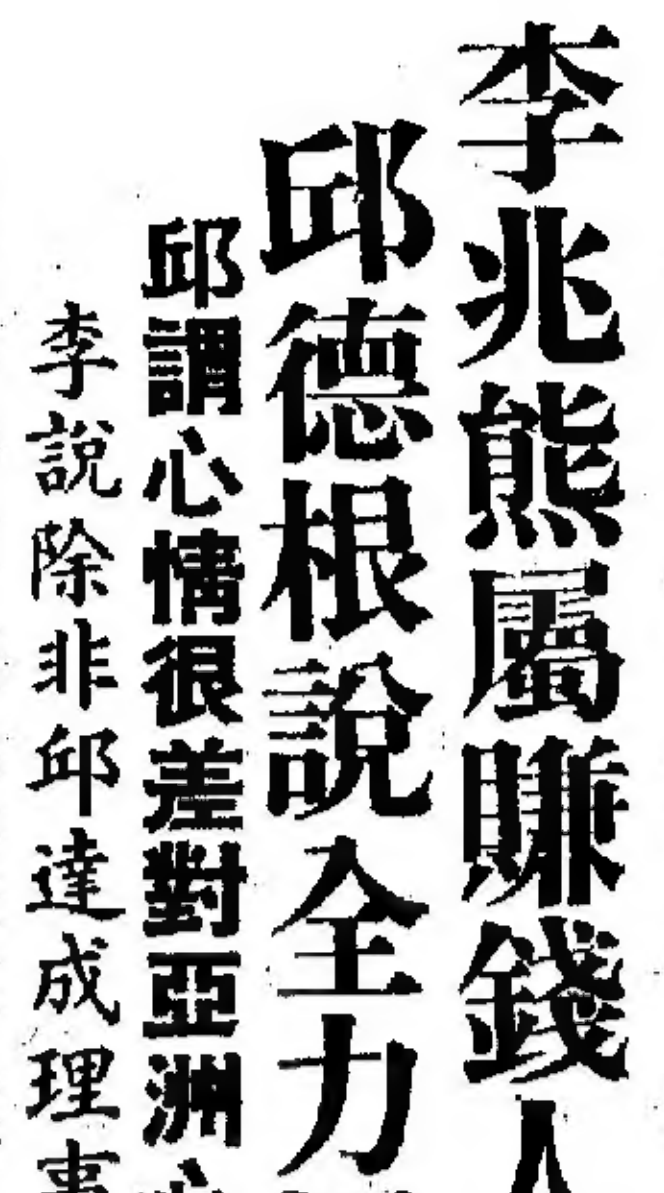 李兆熊屬賺錢人
邱德根說全力
邱謂心情很差對亞洲
李說除非邱達成理事